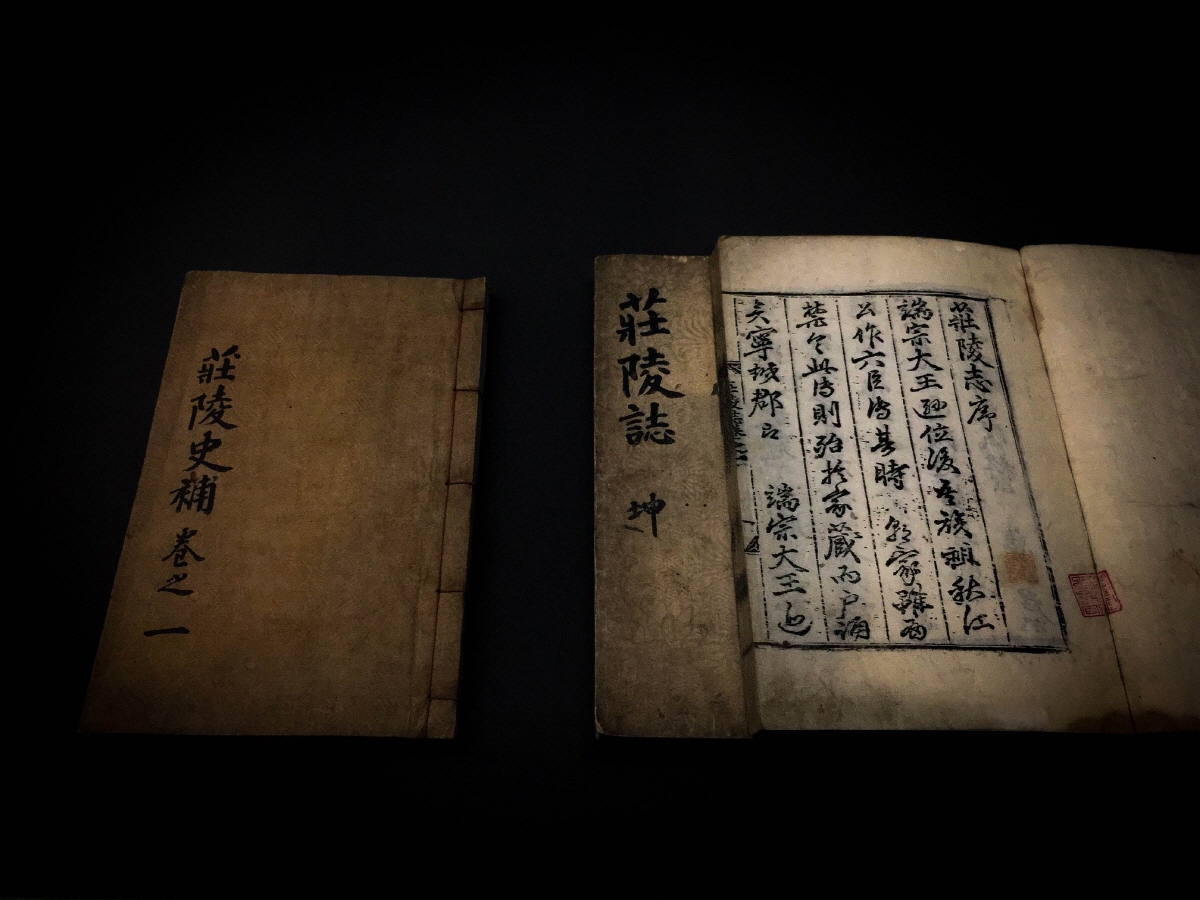 莊陵史補 卷之一
莊陵誌 坤
莊陵志序
端宗大王遜位後吾族祖秋江
公作六臣傳其時 朝家雖西
禁令此傳則殆於家藏而戶誦
矣寧越郡 端宗大王